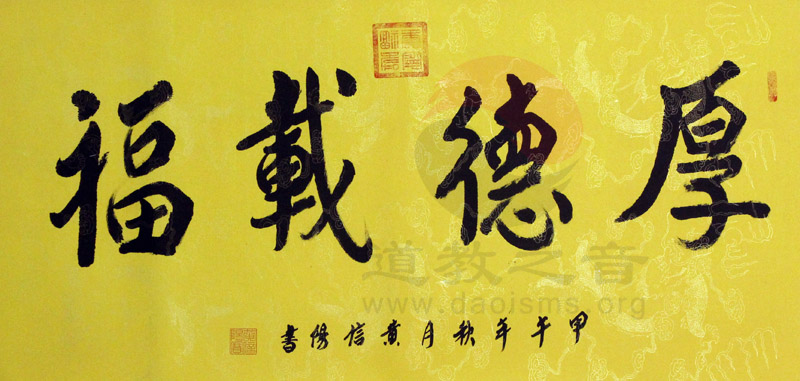 厚德載福
道教之音
www.daoisms.org
甲午年秋月黄信陽書